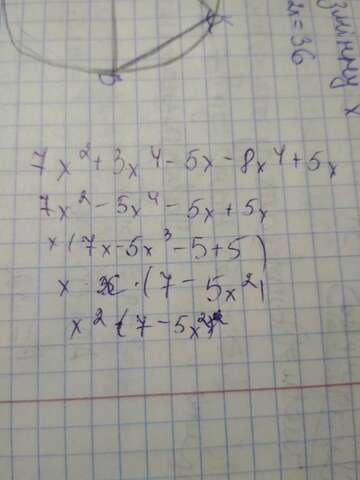 змінну x
x=36
7x² + 3x⁴ - 5x - 8x⁴ + 5x
7x² - 5x⁴ - 5x + 5x
x (7x - 5x³ - 5 + 5)
x · x · (7 - 5x²)
x² · (7 - 5x²)